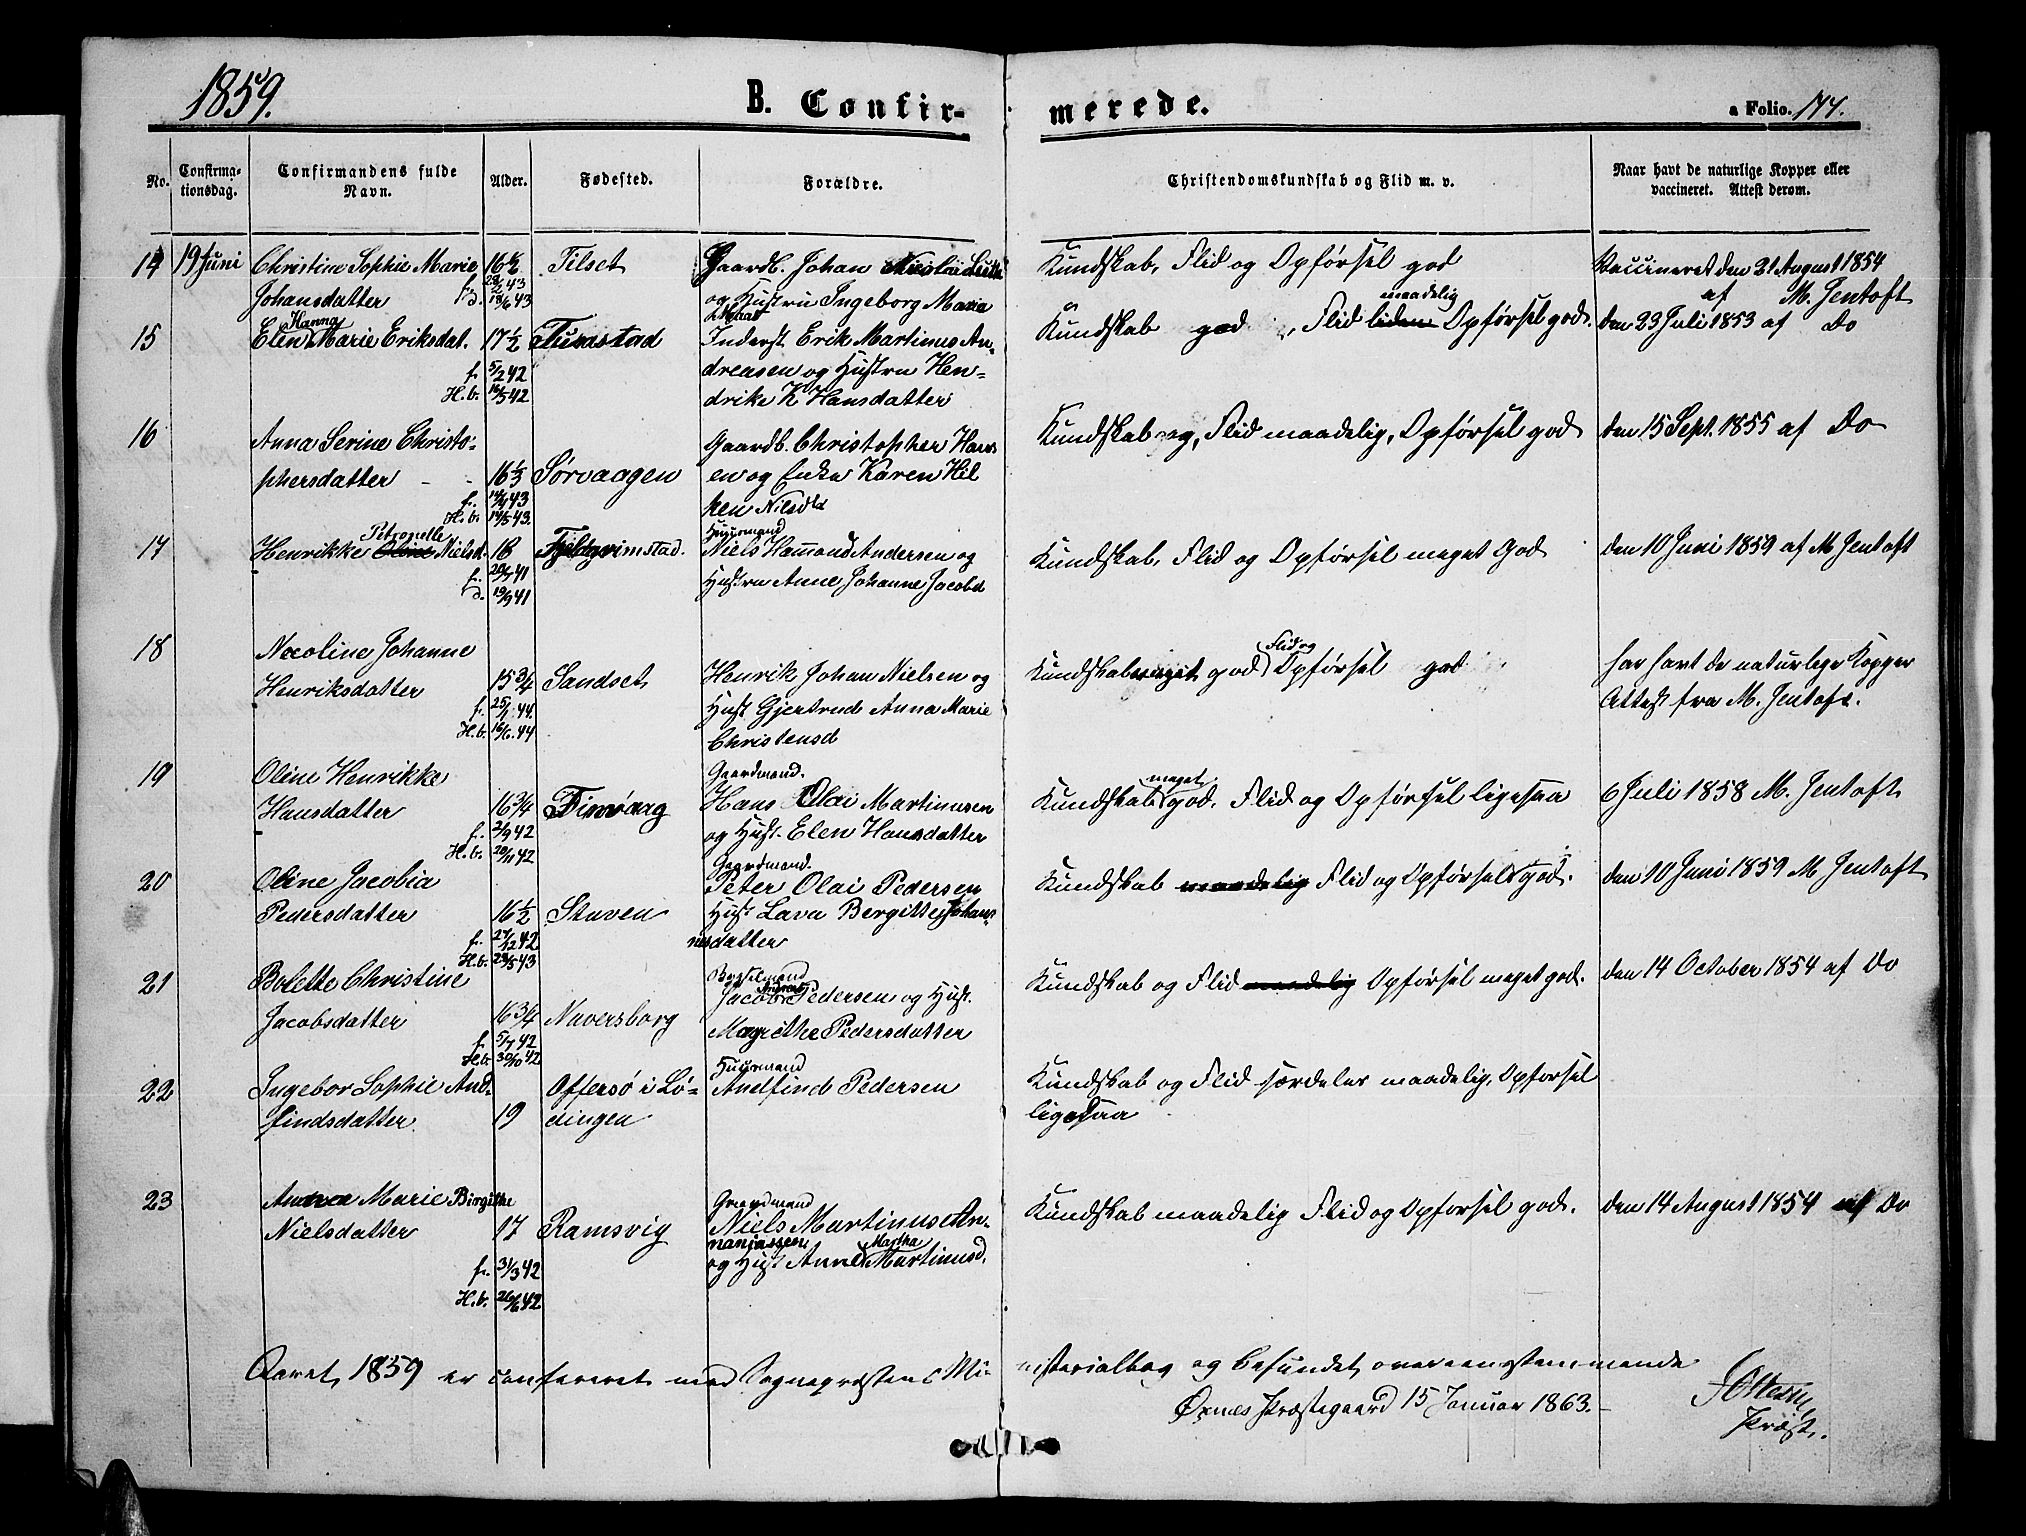 1859.
B. Confir-
merede.
a Folio. 174.
No.
Confirma-
tionsdag.
Confirmandens fulde
Navn.
Alder.
Fødested.
Forældre.
Christendomskundskab og Flid m. v.
Naar havt de naturlige Kopper eller
vaccineret. Attest derom.
14 19 Juni Christine Sophie Marie 16 Tilset Gaardb. Johan Nicolai Kundskab, Flid og Opførsel god Vaccineret den 21 August 1854
Johansdatter f. 43 og Hustru Ingeborg Maria af M. Jentoft
d. 18/6 43
15 Elen Hanna Marie Eriksdat. 17 1/2 Tunstad Inderst Erik Martinus An- Kundskab god, Flid liden maadelig Opførsel god. den 23 Juli 1853 af Do
f. 5/2 42 dreasen og Hustru Hen-
H.b. 16/5 42 drike K Hansdatter
16 Anna Serine Christo- Gaardb. Christopher Hans Kundskab og, Flid maadelig, Opførsel god den 15 Sept. 1855 af Do
phersdatter 16 1/3 Sørvaagen en og Enke Karen Hel
f. 14/4 43 hen Nilsdtr
H.b. 14/5 43.
17 Henrikke Oline Petronelle Nielsd. 18 Fjeldgrimstad. Huusmand
Niels Hammond Andersen og Kundskab, Flid og Opførsel meget God den 10 Juni 1859 af M Jentoft
f. 20/7 41 Hustru Anne Johanne Jacobd
d. 19/9 41
18 Nicoline Johanne
Henriksdatter 15 3/4 Sandset Henrik Johan Nielsen og Kundskab meget god Flid og Opførsel god har havt de naturlige Kopper
f. 25/1 44. Hust Gjertrud Anna Marie Attest fra M. Jentoft.
H.b. 16/6. 44 Christensd
19 Oline Henrikke Gaardmand.
Hansdatter 16 3/4 Finvaag Hans Olai Martinusen Kundskab meget god, Flid og Opførsel ligesaa 6 Juli 1858 M. Jentoft
f. 2/9 42 og Hust. Elen Hansdatter
H.b. 20/11 42
20 Oline Jacobia Gaardmand.
Peter Olai Pedersen Kundskab maadelig Flid og Opførsel god. den 10 Juni 1859 M Jentoft
Pedersdatter 16 1/2 Staven Hust Lava Bergitte Johan-
f. 27/12 42 nesdatter
H.b. 28/5 43
21 Bolette Christine
Jacob Andreas Pedersen og Hust. Kundskab og Flid maadelig Opførsel meget god. den 14 October 1854 af Do
Jacobsdatter 16 3/4 Naversborg Magrethe Pedersdatter
f. 5/7 42
H.b. 30/10 42
22 Ingebor Sophie And- Offersø i Lø- Huusmand
Andfind Pedersen Kundskab og Flid særdeles maadelig, Opførsel
findsdatter 19 dingen ligesaa
23 Andrea Marie Birgithe Gaardmand Kundskab maadelig Flid og Opførsel god. den 14 August 1854 af Do
Nielsdatter 17 Ramsvig Niels Martinus An-
naniassen
f. 31/3 42 og Hust Anne Martha Martinusd.
H.b. 26/6 42
Aaret 1859 er confereret med Sognepræstens Mi-
nisterialbog og befundet overeensstemmende
Øxnes Præstegaard 15 Januar 1863.
Præst.